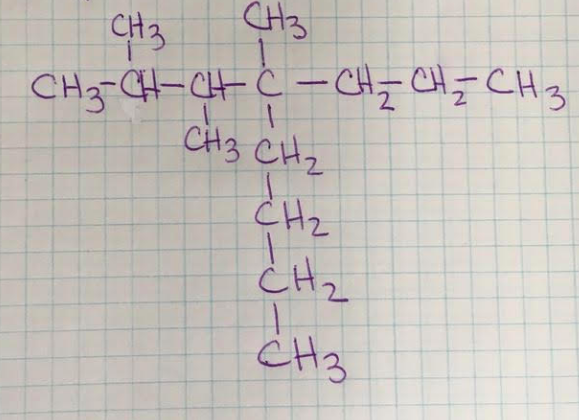 CH3 CH3
CH3-CH-CH-C-CH2-CH2-CH3
CH3 CH2
CH2
CH2
CH3